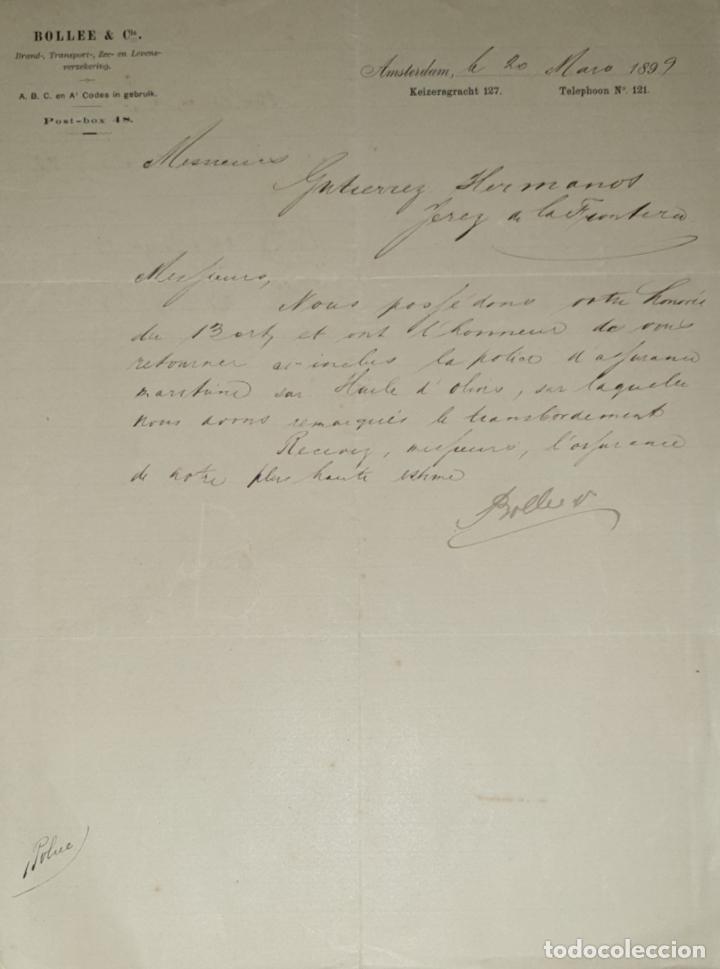 BOLLEE & Cie.
Brand-, Transport-, Zee- en Levens-
verzekering.
A. B. C. en A¹ Codes in gebruik.
Post-box 48.
Amsterdam, le 20 Mars 1899
Keizersgracht 127. Telephoon No. 121.
Messieurs
Gutierrez Hermanos
Jerez de la Frontera
Messieurs,
Nous possédons votre honorée
du 13 et ont l'honneur de vous
retourner ci-inclus la police d'assurance
maritime sur Huile d'olives, sur laquelle
nous avons remarqués le transbordement
Recevez, messieurs, l'assurance
de notre plus haute estime
Bollee
1 Police
todocoleccion